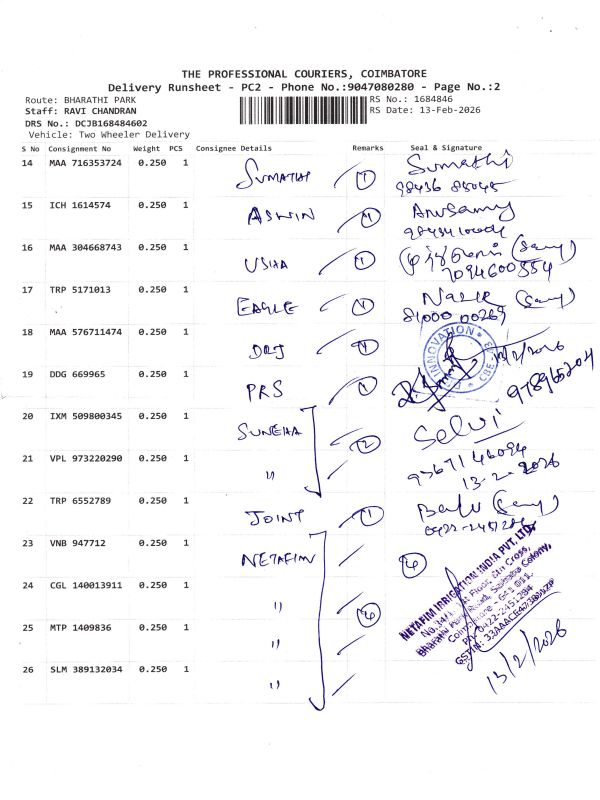 THE PROFESSIONAL COURIERS, COIMBATORE
Delivery Runsheet - PC2 - Phone No.:9047080280 - Page No.:2
Route: BHARATHI PARK
RS No.: 1684846
Staff: RAVI CHANDRAN
RS Date: 13-Feb-2026
DRS No.: DCJB168484602
Vehicle: Two Wheeler Delivery
S No Consignment No Weight PCS Consignee Details Remarks Seal & Signature
14 MAA 716353724 0.250 1 SUMATHI 1 Sumathi
15 ICH 1614574 0.250 1 ASWIN 1
16 MAA 304668743 0.250 1 USHA 1
7094600554
17 TRP 5171013 0.250 1 EAGLE 1
81000 00269
18 MAA 576711474 0.250 1 1
INNOVATION CBE
12/2/2026
19 DDG 669965 0.250 1 PRS 1
20 IXM 509800345 0.250 1 SUNEHA 2 Selvi
21 VPL 973220290 0.250 1 "
13-2-2026
22 TRP 6552789 0.250 1 JOINT 1
23 VNB 947712 0.250 1 NETAFIM 4
24 CGL 140013911 0.250 1 " 4
25 MTP 1409836 0.250 1 "
26 SLM 389132034 0.250 1 "
NETAFIM IRRIGATION INDIA PVT. LTD.
Floor, 5th Cross,
Bharathi Park Road, Saibaba Colony,
Coimbatore - 641 011.
PH: 0422-2451284
13/2/2026